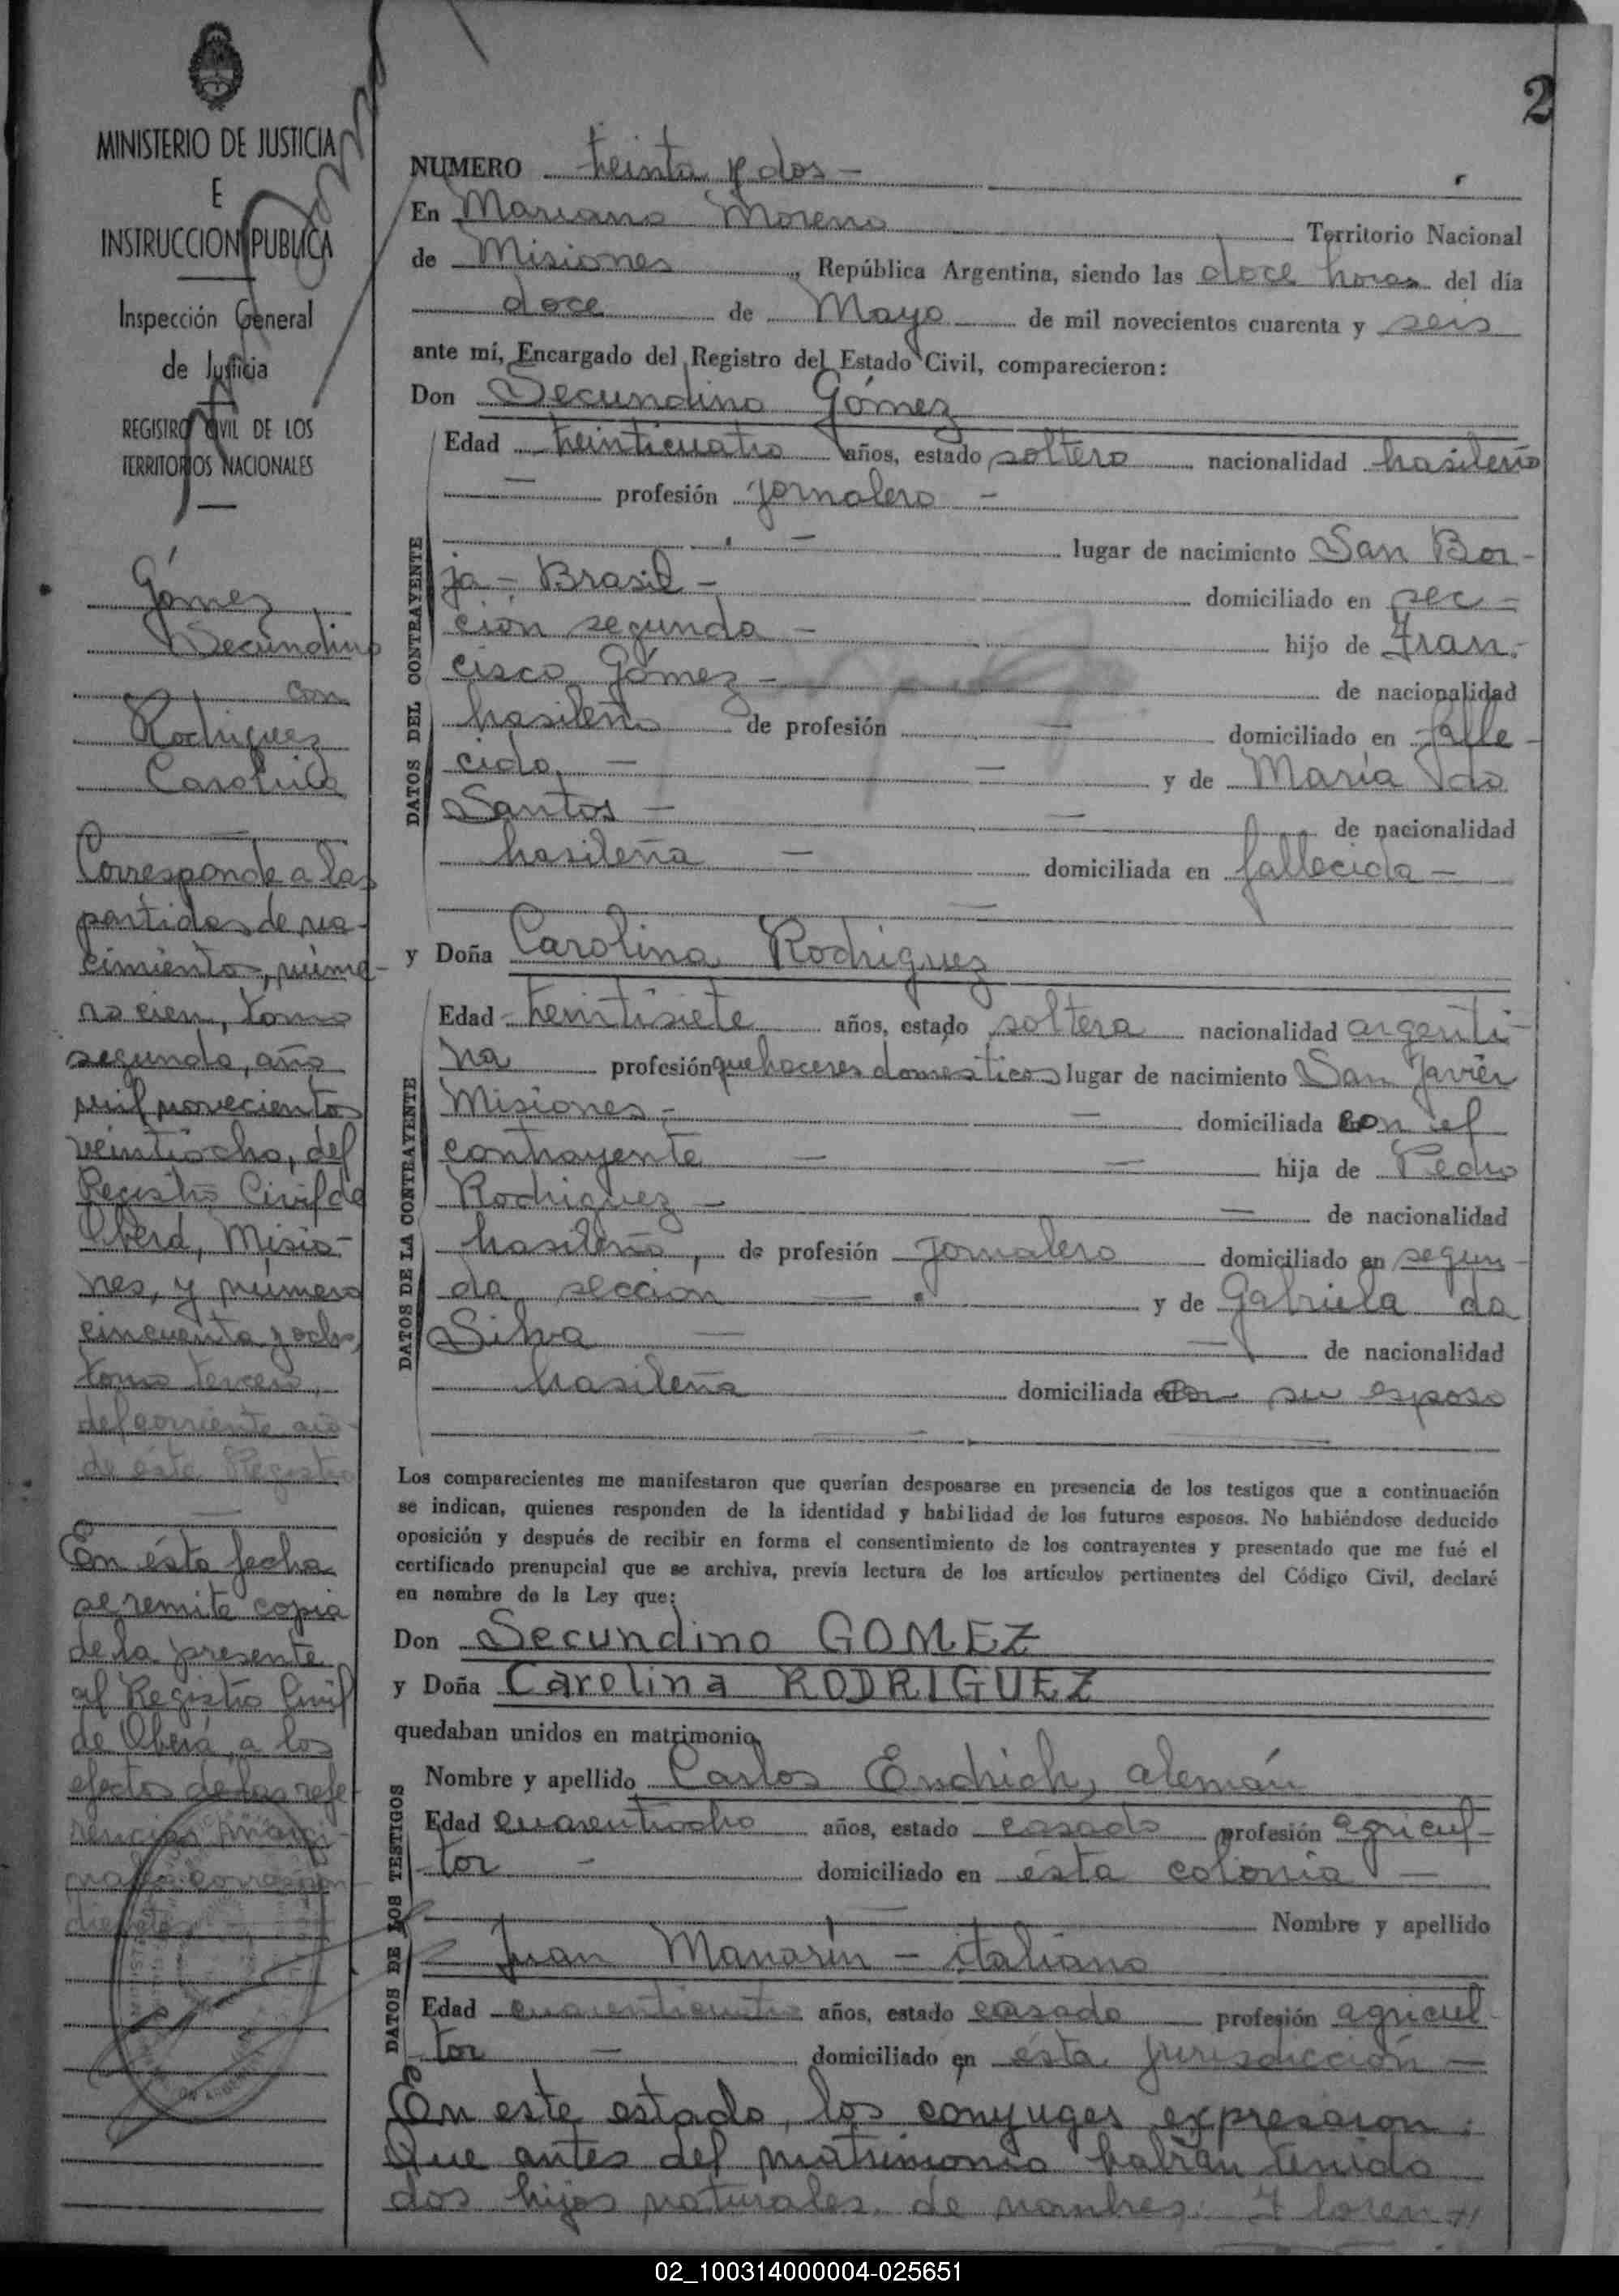 2
MINISTERIO DE JUSTICIA
E
INSTRUCCION PUBLICA
Inspección General
de Justicia
REGISTRO CIVIL DE LOS
TERRITORIOS NACIONALES
Gómez
Secundino
con
Rodriguez
Carolina
Corresponde a las
partidas de na-
cimientos, núme-
ro cien, tomo
segundo, año
mil novecientos
veintiocho, del
Registro Civil de
Oberá, Misio-
nes, y número
cincuenta y ocho,
tomo tercero,
del corriente año
de éste Registro
En ésta fecha
se remite copia
de la presente
al Registro Civil
de Oberá, a los
efectos de las refe-
rencias margi-
nales correspon-
dientes
NUMERO treinta y dos -
En Mariano Moreno Territorio Nacional
de Misiones, República Argentina, siendo las doce horas del día
doce de Mayo de mil novecientos cuarenta y seis
ante mí, Encargado del Registro del Estado Civil, comparecieron:
Don Secundino Gómez
DATOS DEL CONTRAYENTE
Edad treinticuatro años, estado soltero nacionalidad brasileño
- profesión jornalero -
- lugar de nacimiento San Bor-
ja - Brasil - domiciliado en sec-
ción segunda - hijo de Fran-
cisco Gómez - de nacionalidad
brasileño de profesión - domiciliado en falle-
cido - - y de María do
Santos - - de nacionalidad
brasileña - domiciliada en fallecida -
y Doña Carolina Rodriguez
DATOS DE LA CONTRAYENTE
Edad treintisiete años, estado soltera nacionalidad argenti-
na profesión quehaceres domésticos lugar de nacimiento San Javier
Misiones - - domiciliada con el
contrayente - - hija de Pedro
Rodriguez - - de nacionalidad
brasileño, de profesión jornalero domiciliado en segun-
da sección - y de Gabriela da
Silva - - de nacionalidad
brasileña domiciliada con su esposo
Los comparecientes me manifestaron que querían desposarse en presencia de los testigos que a continuación
se indican, quienes responden de la identidad y habilidad de los futuros esposos. No habiéndose deducido
oposición y después de recibir en forma el consentimiento de los contrayentes y presentado que me fué el
certificado prenupcial que se archiva, previa lectura de los artículos pertinentes del Código Civil, declaré
en nombre de la Ley que:
Don Secundino GOMEZ
y Doña Carolina RODRIGUEZ
quedaban unidos en matrimonio.
DATOS DE LOS TESTIGOS
Nombre y apellido Carlos Endrich, alemán
Edad cuarentiocho años, estado casado profesión agricul-
tor - domiciliado en ésta colonia -
- Nombre y apellido
Juan Manarín - italiano
Edad cuarenticuatro años, estado casado profesión agricul-
tor - domiciliado en ésta jurisdicción -
En este estado, los conyuges expresaron:
Que antes del matrimonio habían tenido
dos hijos naturales de nombres:
02_100314000004-025651